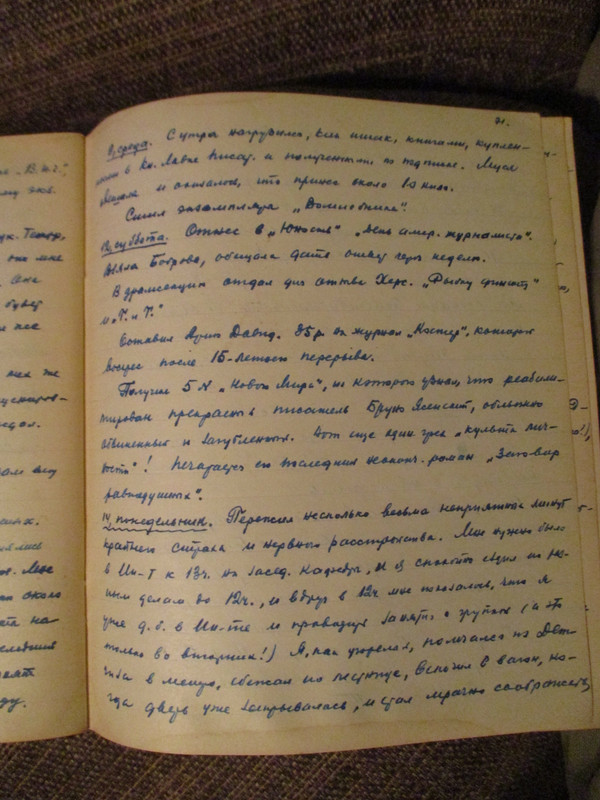 71.
9, среда. С утра нагрузился, как ишак, книгами, куплен-
ными в кн. Лавке писат. и полученными по подписке. Музей
и оказалось, что принес около 10 кило.
экземпляра „Домнобтиса“.
12, суббота. Отнес в „Юность“ „День амер. журналиста“.
Взяла Боброва, обещала дать ответ через неделю.
В драмсекцию отдал для отзыва Херс. „Рыбку финист“
и „Т. и Т.“
Оставил Давид. 35 р. на журнал „Костер“, который
воскрес после 15-летнего перерыва.
Получил 5 № „Нового Мира“, из которого узнал, что реабили-
тирован прекрасный писатель Бруно Ясенский, облыжно
обвиненный и загубленный. Вот еще один грех „культа лич-
ности“! Печатается его последний неоконч. роман „Заговор
равнодушных“.
14, понедельник. Пережил несколько весьма неприятных минут
крайнего страха и нервного расстройства. Мне нужно было
в Ин-т к 13 ч. на засед. кафедры, и я спокойно ездил по раз-
ным делам до 12 ч., и вдруг в 12 ч. мне показалось, что я
уже д. б. в Ин-те и проводить занятия с группой (а это
только во вторник!) Я, как угорелый, помчался из Дет-
гиза в метро, сбежал по лестнице, вскочил в вагон, ко-
гда дверь уже закрывалась, и стал мрачно соображать,
„В.п.г.“,
ому экз.
ук. Театр,
он мне
Она
будет
мы же
ускоров-
едал.
около
на-
следний
ду.